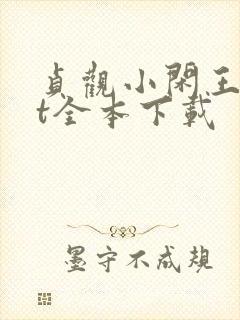 貞觀小閑王
t全本下載
墨守不成規